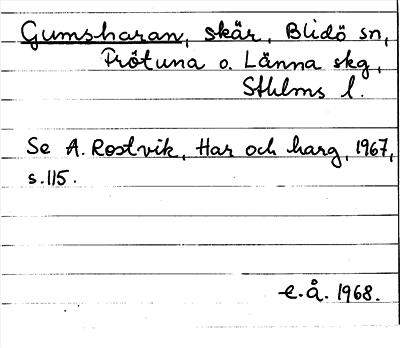 Gumsharan, skär, Blidö sn,
Frötuna o. Länna skg,
Sthlms l.
Se A. Rostvik, Har och harg, 1967,
s. 115.
E.Å. 1968.